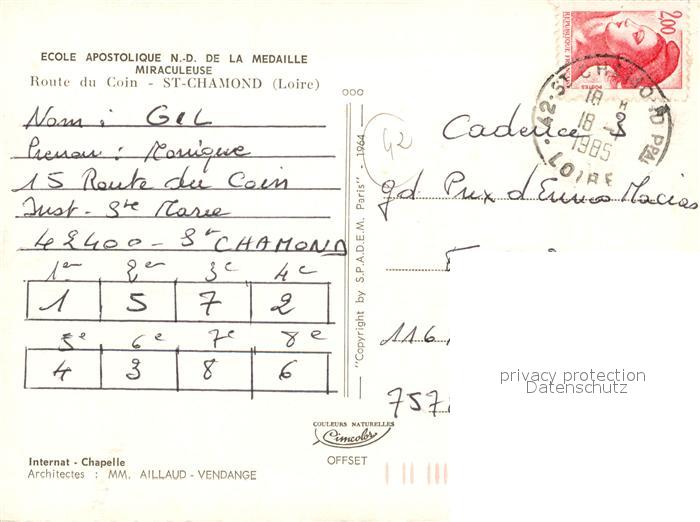 ECOLE APOSTOLIQUE N.-D. DE LA MEDAILLE
MIRACULEUSE
Route du Coin - ST-CHAMOND (Loire)
Nom : GEL
Prenom : Monique
15 Route du Coin
Inst. Ste Marie
42400 - St CHAMOND
1er 2e 3e 4e
1 5 7 2
5e 6e 7e 8e
4 3 8 6
Internat - Chapelle
Architectes : MM. AILLAUD - VENDANGE
"Copyright by S.P.A.D.E.M. Paris" - 1964
COULEURS NATURELLES
Cimcolor
OFFSET
2,00
POSTES
42 ST CHAMOND PPAL
18 H
18
1985
LOIRE
42
Cadence 3
gd Prix d'Enrico Macias
116,
757
privacy protection
Datenschutz